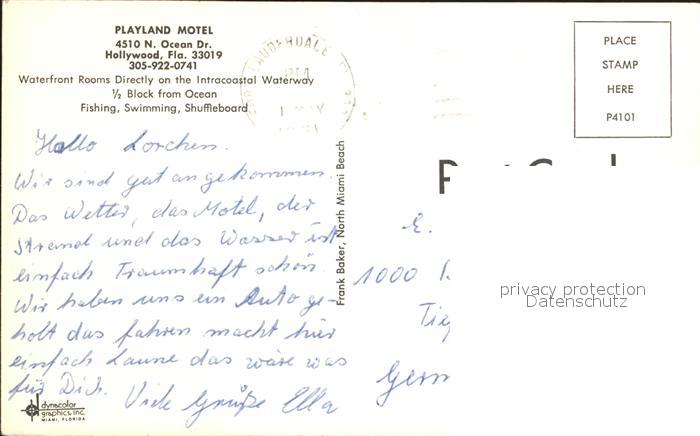 PLAYLAND MOTEL
4510 N. Ocean Dr.
Hollywood, Fla. 33019
305-922-0741
Waterfront Rooms Directly on the Intracoastal Waterway
½ Block from Ocean
Fishing, Swimming, Shuffleboard
LAUDERDALE
PM
PLACE
STAMP
HERE
P4101
Hallo Lorchen.
Wir sind gut angekommen.
Das Wetter, das Motel, der
Strand und das Wasser ist
einfach Traumhaft schön.
Wir haben uns ein Auto ge-
holt das fahren macht hier
einfach Laune das wäre was
für Dich. Viele Grüße Ella
dynacolor
graphics, inc.
MIAMI, FLORIDA
Frank Baker, North Miami Beach
E.
1000
privacy protection
Datenschutz